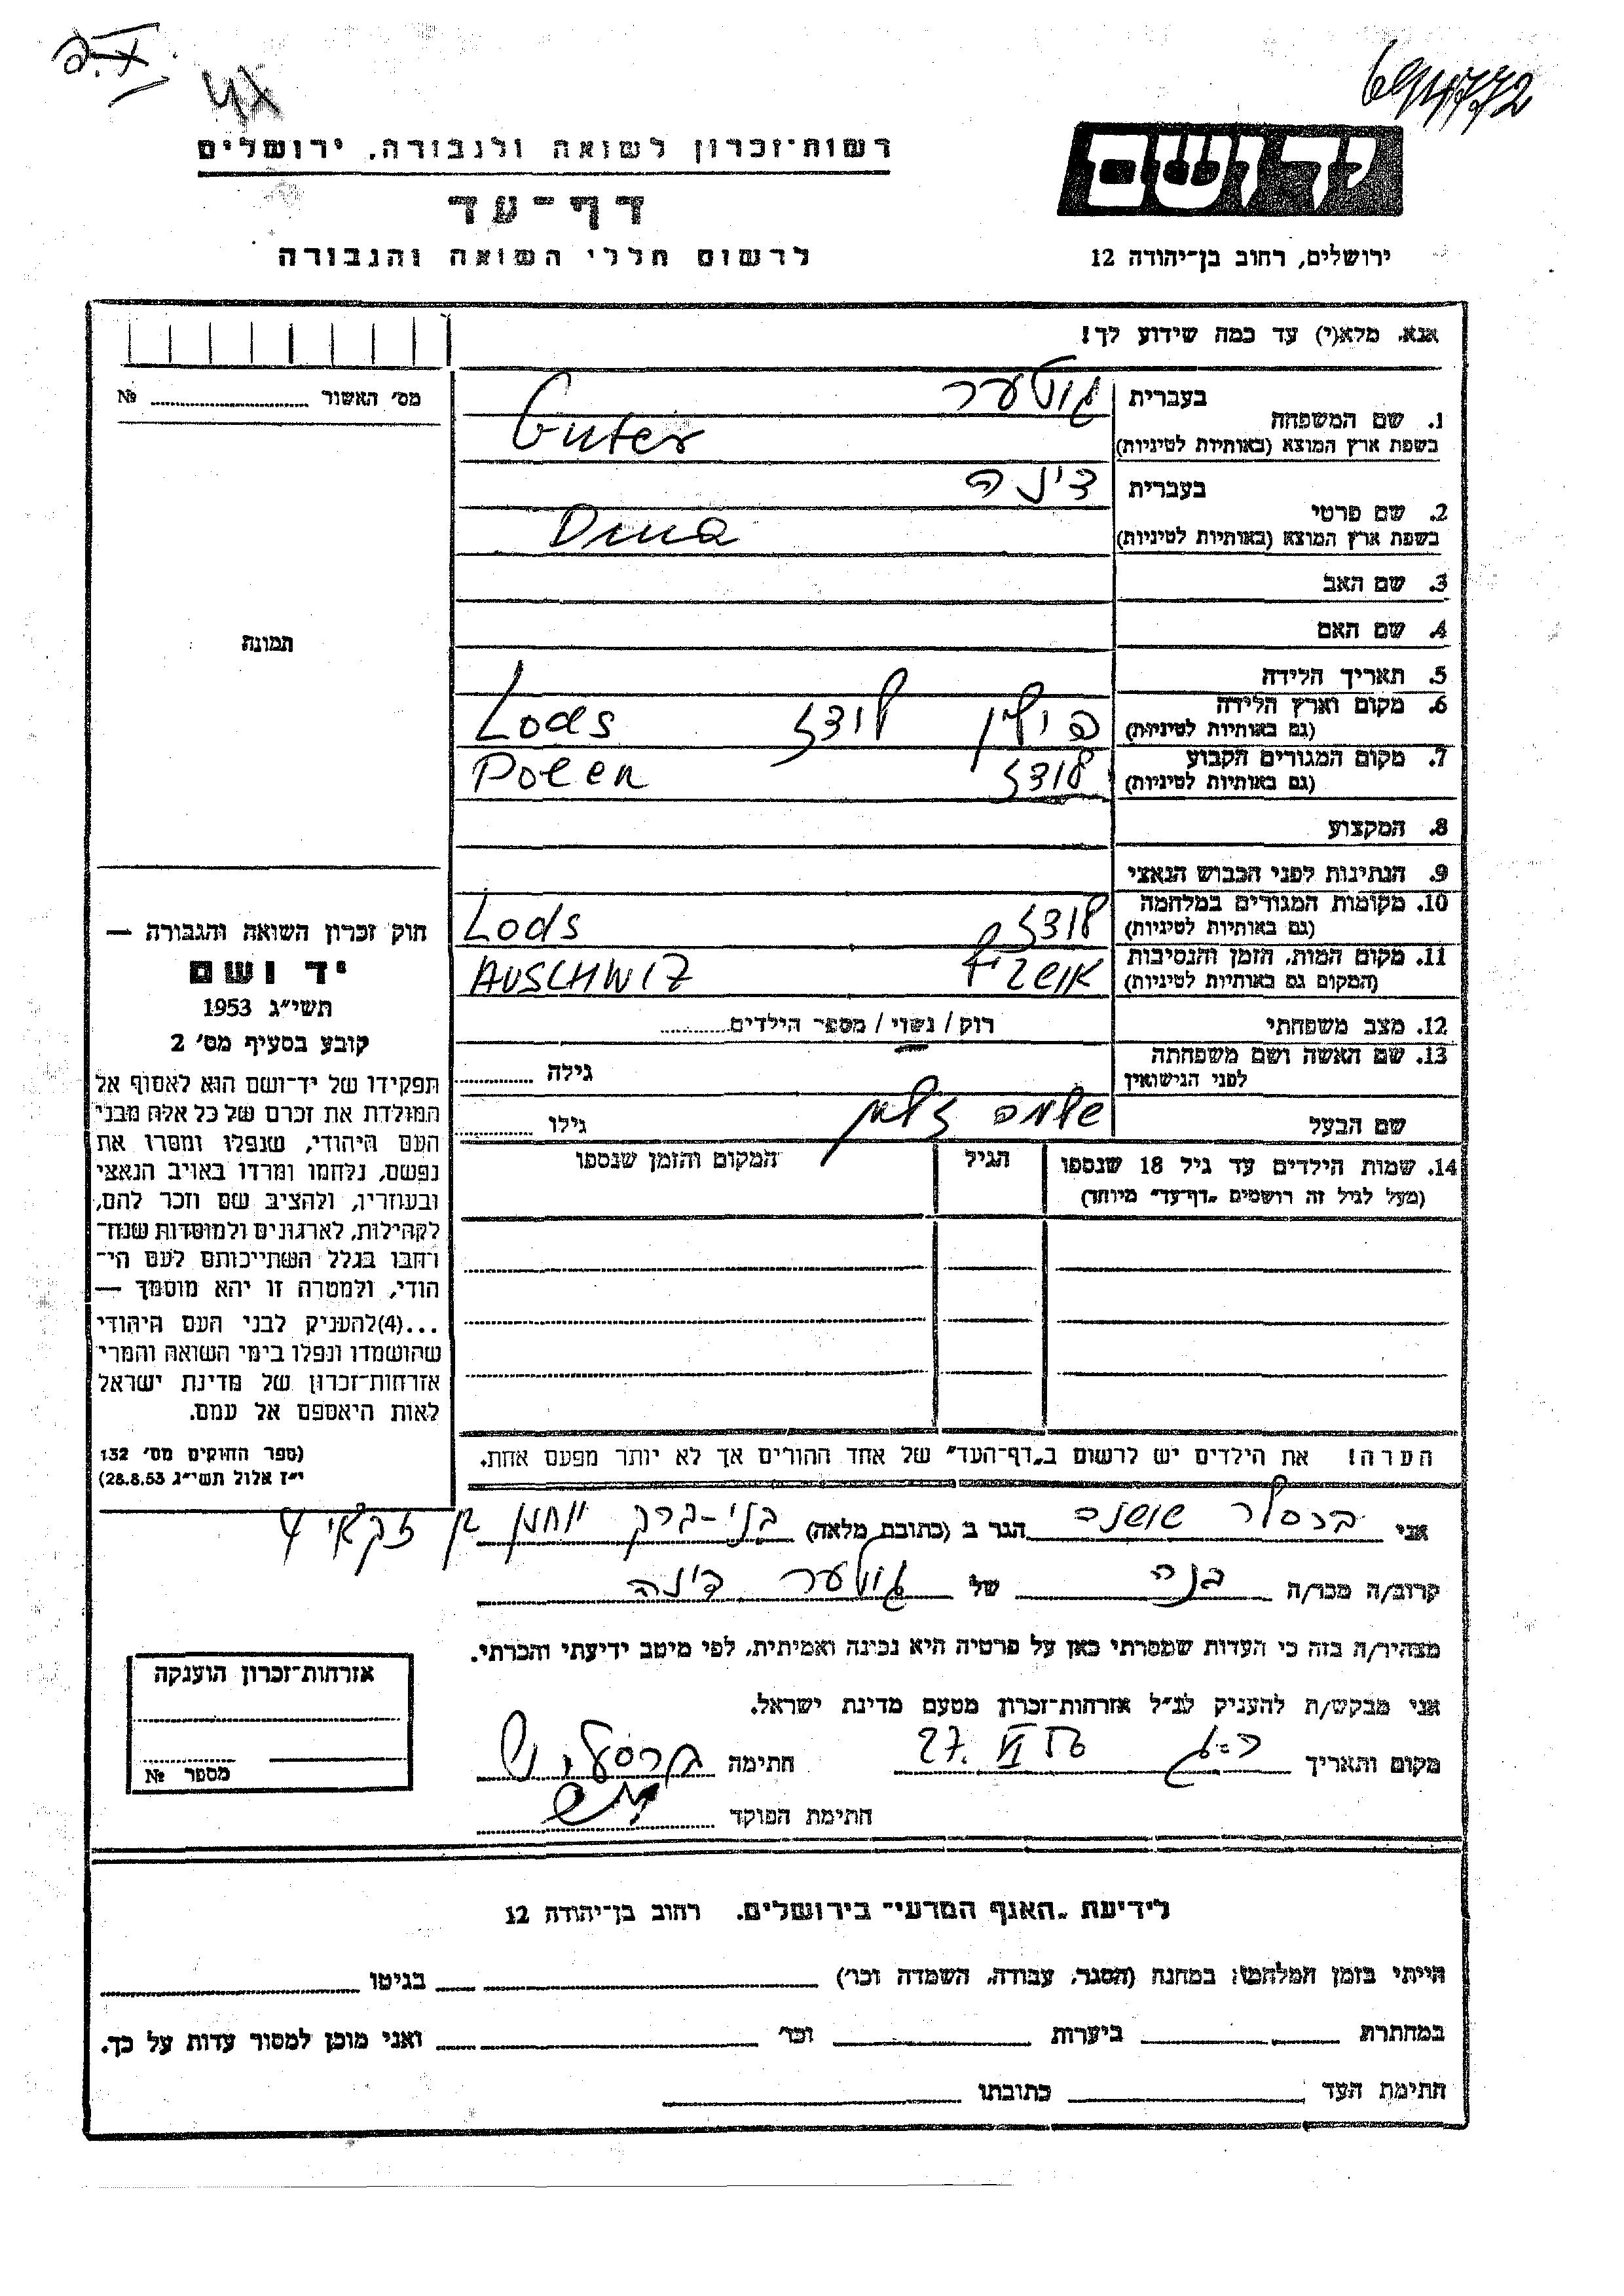 רשות-זכרון לשואה ולגבורה, ירושלים
דף-עד
לרשום חללי השואה והגבורה
יד ושם
ירושלים, רחוב בן-יהודה 12
אנא, מלא(י) עד כמה שידוע לך!
מס' האשור № ........
1. שם המשפחה
בעברית גוטער
בשפת ארץ המוצא (באותיות לטיניות) Guter
2. שם פרטי
בעברית דינה
בשפת ארץ המוצא (באותיות לטיניות) Dina
3. שם האב
4. שם האם
תמונה
5. תאריך הלידה
6. מקום וארץ הלידה
(גם באותיות לטיניות) פולין לודז Lods
7. מקום המגורים הקבוע
(גם באותיות לטיניות) לודז Polen
8. המקצוע
9. הנתינות לפני הכבוש הנאצי
10. מקומות המגורים במלחמה
(גם באותיות לטיניות) לודז Lods
11. מקום המות, הזמן והנסיבות
(המקום גם באותיות לטיניות) AUSCHWIZ
12. מצב משפחתי רוק / נשוי / מספר הילדים........
13. שם האשה ושם משפחתה
לפני הנישואין גילה ........
שם הבעל שלמה זלמן גילו ........
14. שמות הילדים עד גיל 18 שנספו הגיל המקום והזמן שנספו
(מעל לגיל זה רושמים "דף-עד" מיוחד)
חוק זכרון השואה והגבורה —
יד ושם
תשי"ג 1953
קובע בסעיף מס' 2
תפקידו של יד-ושם הוא לאסוף אל
המולדת את זכרם של כל אלה מבני
העם היהודי, שנפלו ומסרו את
נפשם, נלחמו ומרדו באויב הנאצי
ובעוזריו, ולהציב שם וזכר להם,
לקהילות, לארגונים ולמוסדות שנח-
רחבו בגלל השתייכותם לעם הי-
הודי, ולמטרה זו יהא מוסמך —
...(4)להעניק לבני העם היהודי
שהושמדו ונפלו בימי השואה והמרי
אזרחות-זכרון של מדינת ישראל
לאות היאספם אל עמם.
(ספר החוקים מס' 132
י"ז אלול תשי"ג 28.8.53)
הערה! את הילדים יש לרשום ב"דף-העד" של אחד ההורים אך לא יותר מפעם אחת.
אני ברסלר שושנה הגר ב (כתובת מלאה) בני-ברק יוחנן בן זכאי 4
קרוב/ה מכר/ה בנה של גוטער דינה
מצהיר/ה בזה כי העדות שמסרתי כאן על פרטיה היא נכונה ואמיתית, לפי מיטב ידיעתי והכרתי.
אני מבקש/ת להעניק לנ"ל אזרחות-זכרון מטעם מדינת ישראל.
מקום והתאריך 27. VI 56 חתימה
חתימת הפוקד
אזרחות-זכרון הוענקה
מספר №
לידיעת "האגף המדעי" בירושלים, רחוב בן-יהודה 12
הייתי בזמן המלחמה: במחנה (הסגר, עבודה, השמדה וכו') בגיטו
במחתרת ביערות וכו' ואני מוכן למסור עדות על כך.
חתימת העד כתובתו